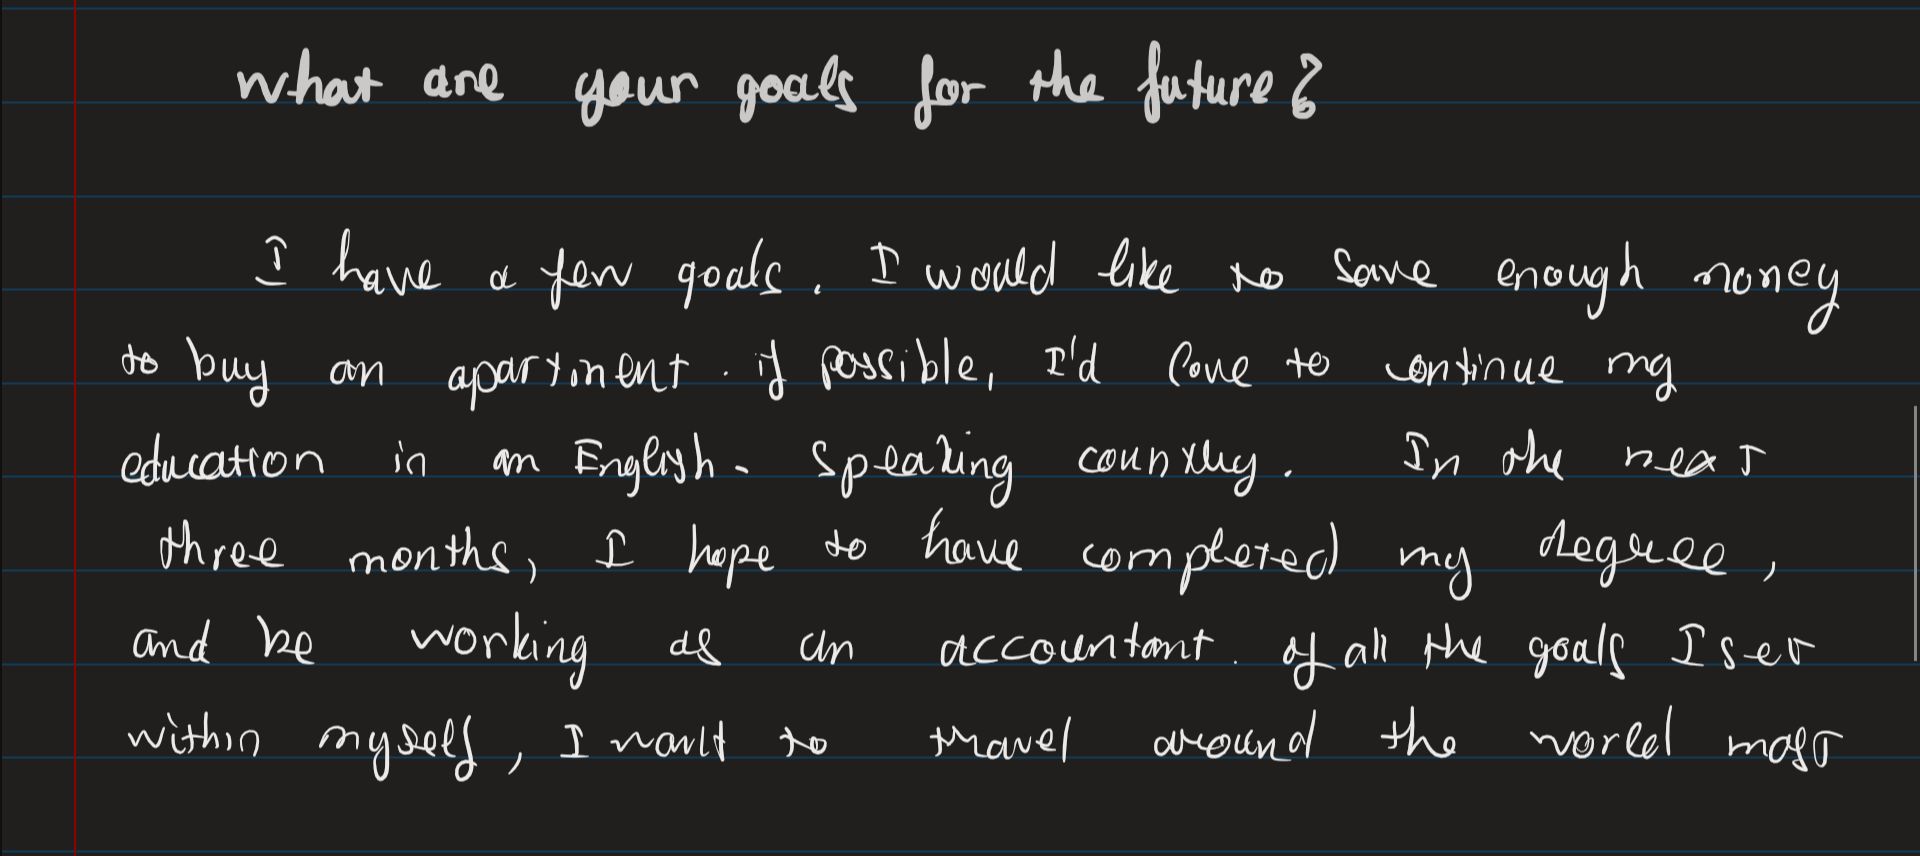 what are your goals for the future?
I have a few goals. I would like to save enough money
to buy an apartment. if possible, I'd love to continue my
education in an English-speaking country. In the next
three months, I hope to have completed my degree,
and be working as an accountant. Of all the goals I set
within myself, I want to travel around the world most